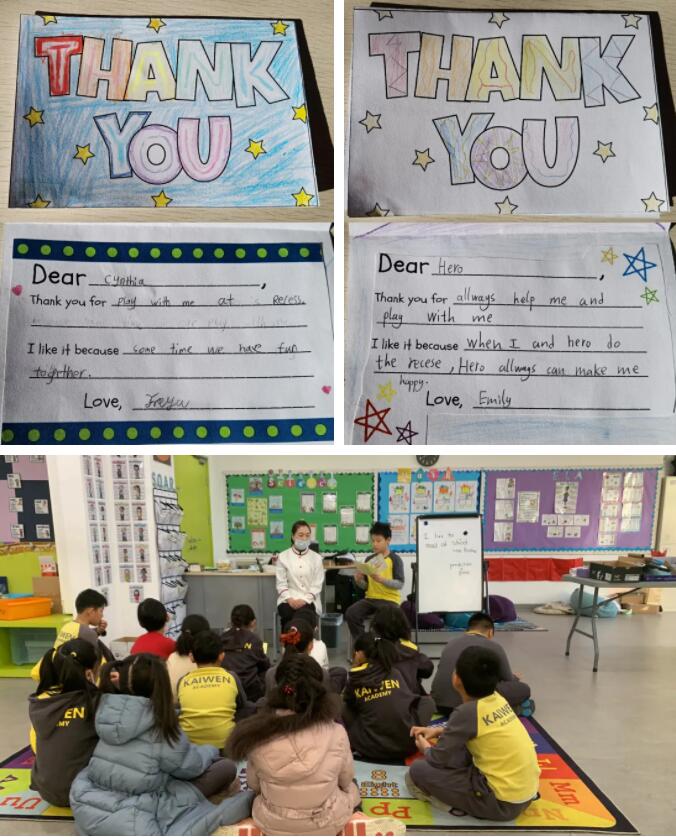 THANK
YOU
THANK
YOU
Dear Cynthia,
Thank you for play with me at Recess.
I like it because some time we have fun
togrther.
Love, Freya
Dear Hero,
Thank you for allways help me and
play with me
I like it because when I and hero do
the recese, Hero allways can make me
happy.
Love, Emily
SOAR
Science
Math
ELA
I like to
read at school
KAIWEN
EN
MY
KAIWEN
ACADEMY
KAIWEN
ACADEMY
KAIWEN
ACADEMY
Mm
Pp
Uu